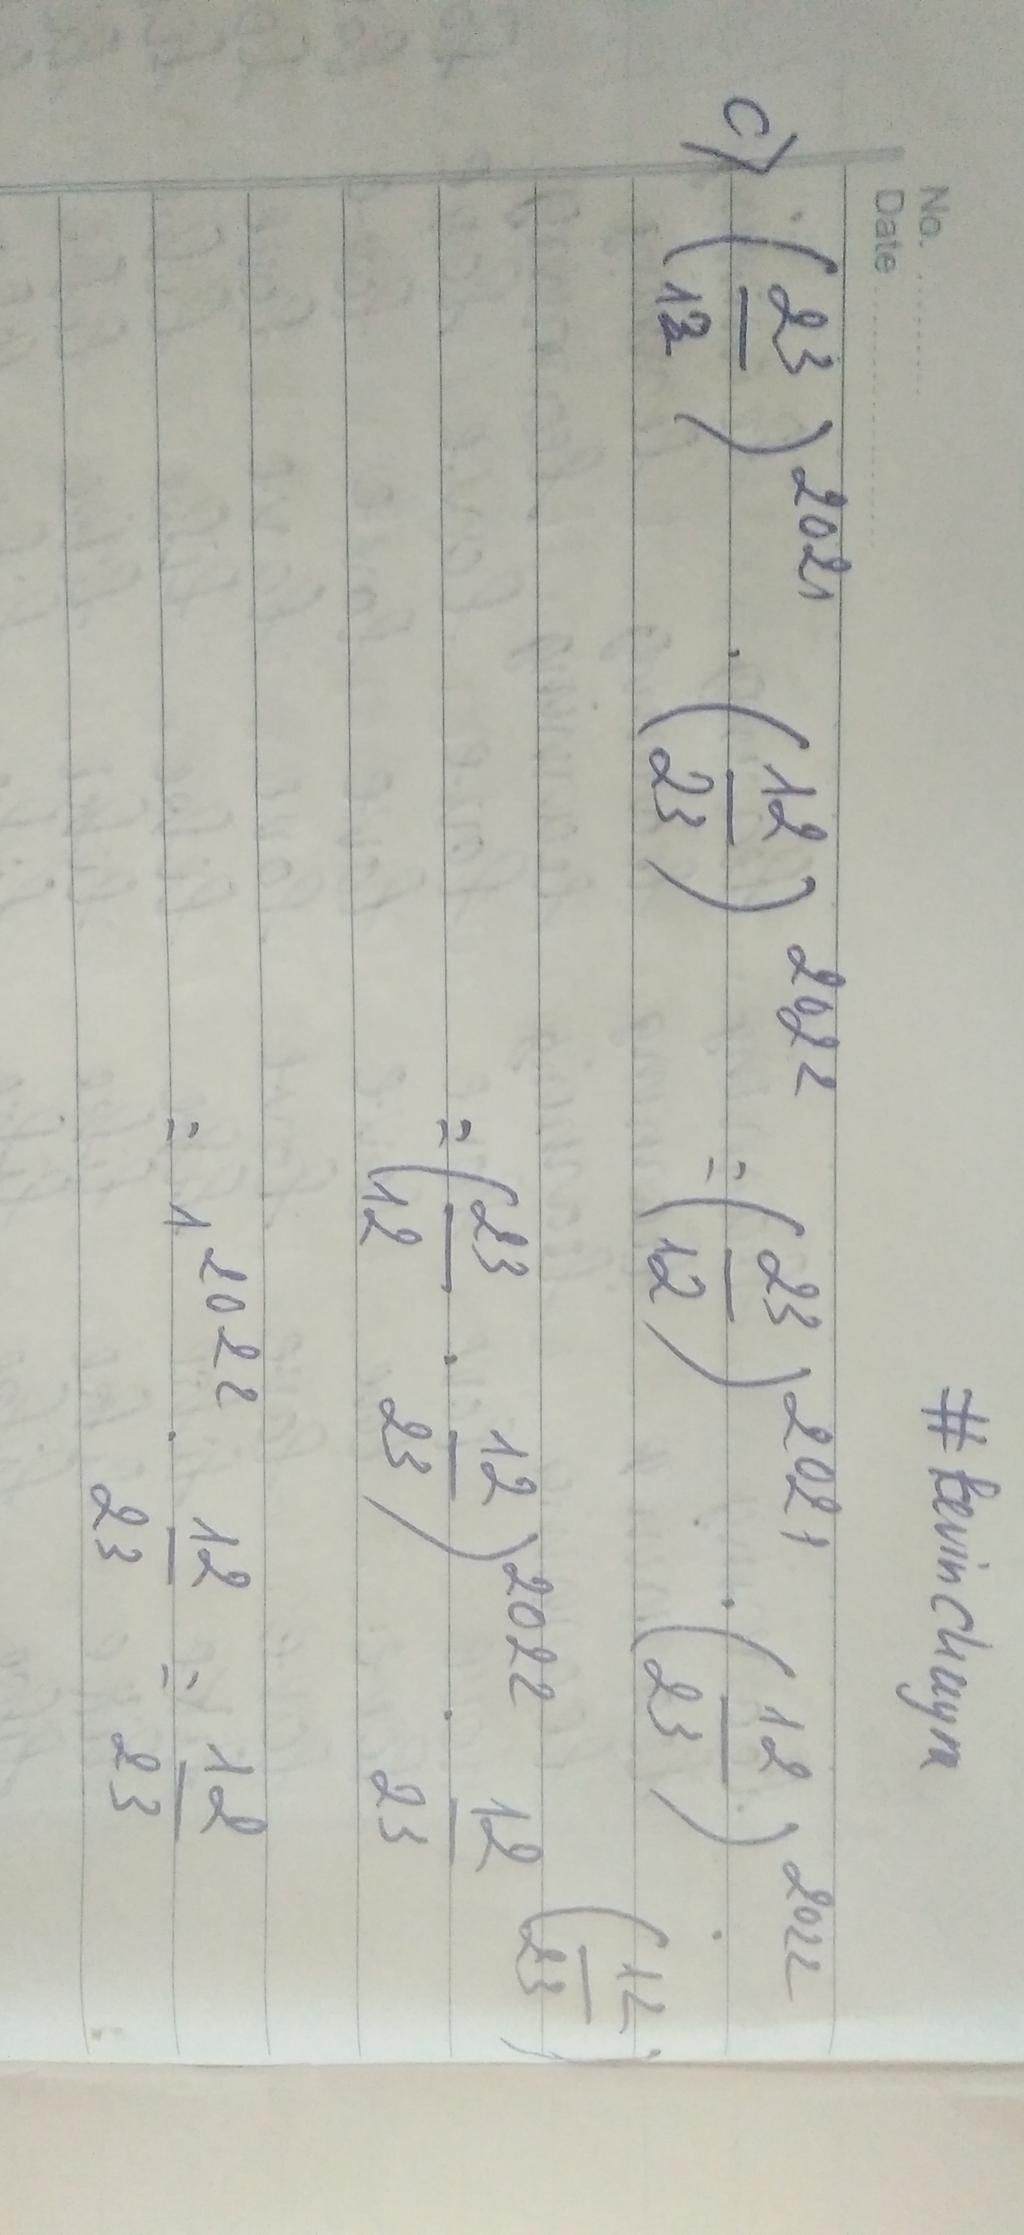 No.
Date
#kevinchaym
c) (23/12)^2021 . (12/23)^2022 = (23/12)^2021 . (12/23)^2022 .
(12/23)
= (23/12 . 12/23)^2022 . 12/23
= 1^2022 . 12/23 = 12/23